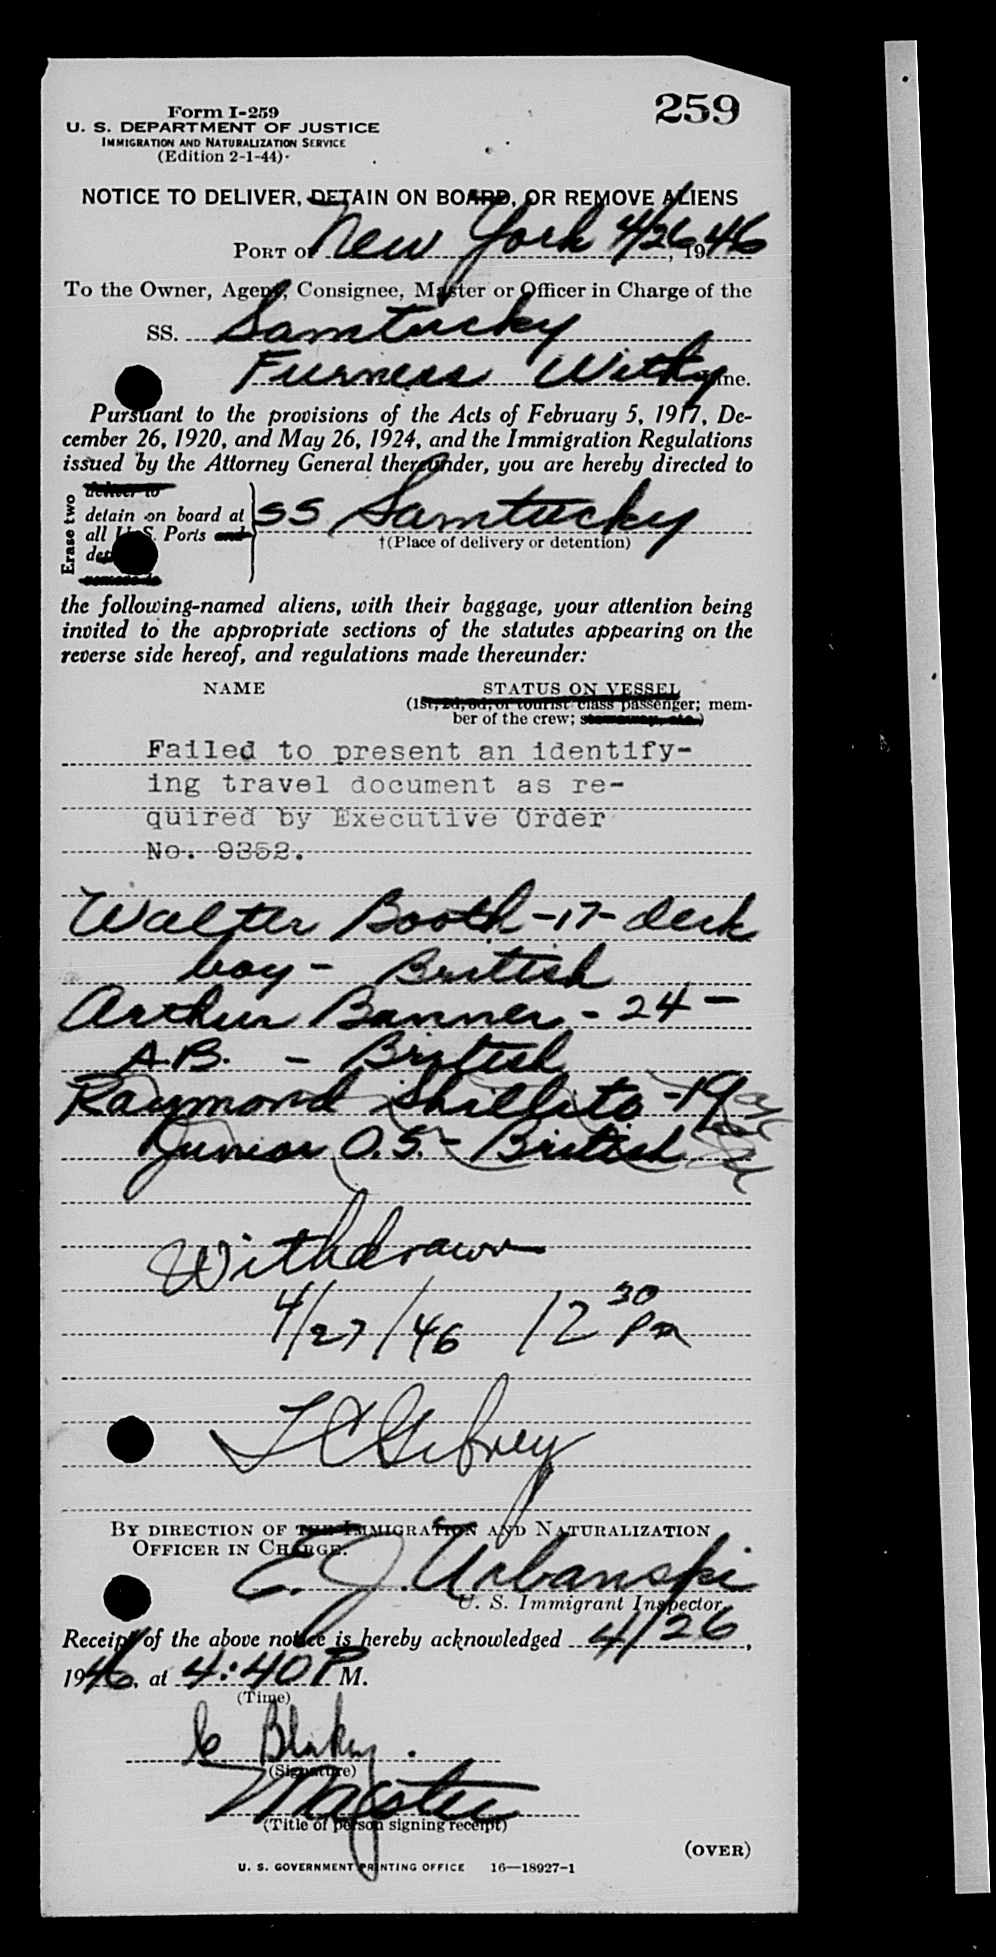 259
Form I-259
U. S. DEPARTMENT OF JUSTICE
IMMIGRATION AND NATURALIZATION SERVICE
(Edition 2-1-44)
NOTICE TO DELIVER, DETAIN ON BOARD, OR REMOVE ALIENS
PORT of New York 4/26, 1946
To the Owner, Agent, Consignee, Master or Officer in Charge of the
SS. Samtucky
Furness Withy Line.
Pursuant to the provisions of the Acts of February 5, 1917, De-
cember 26, 1920, and May 26, 1924, and the Immigration Regulations
issued by the Attorney General thereunder, you are hereby directed to
Erase two
deliver to
detain on board at
all U. S. Ports and
remove to
SS Samtucky
†(Place of delivery or detention)
the following-named aliens, with their baggage, your attention being
invited to the appropriate sections of the statutes appearing on the
reverse side hereof, and regulations made thereunder:
NAME
STATUS ON VESSEL
(1st, 2d, 3d, or tourist class passenger; mem-
ber of the crew; stowaway, etc.)
Failed to present an identify-
ing travel document as re-
quired by Executive Order
No. 9352.
Walter Booth - 17 - deck
boy - British
Arthur Banner - 24 -
A.B. - British
Raymond Shillito - 19
Junior O.S. - British
Withdrawn
4/27/46 12 30 PM
BY DIRECTION OF THE IMMIGRATION AND NATURALIZATION
OFFICER IN CHARGE.
E. J. Urbanski
U. S. Immigrant Inspector
Receipt of the above notice is hereby acknowledged 4/26,
1946, at 4:40 P M.
(Time)
C Blakey.
(Signature)
Master
(Title of person signing receipt)
(OVER)
U. S. GOVERNMENT PRINTING OFFICE 16—18927-1